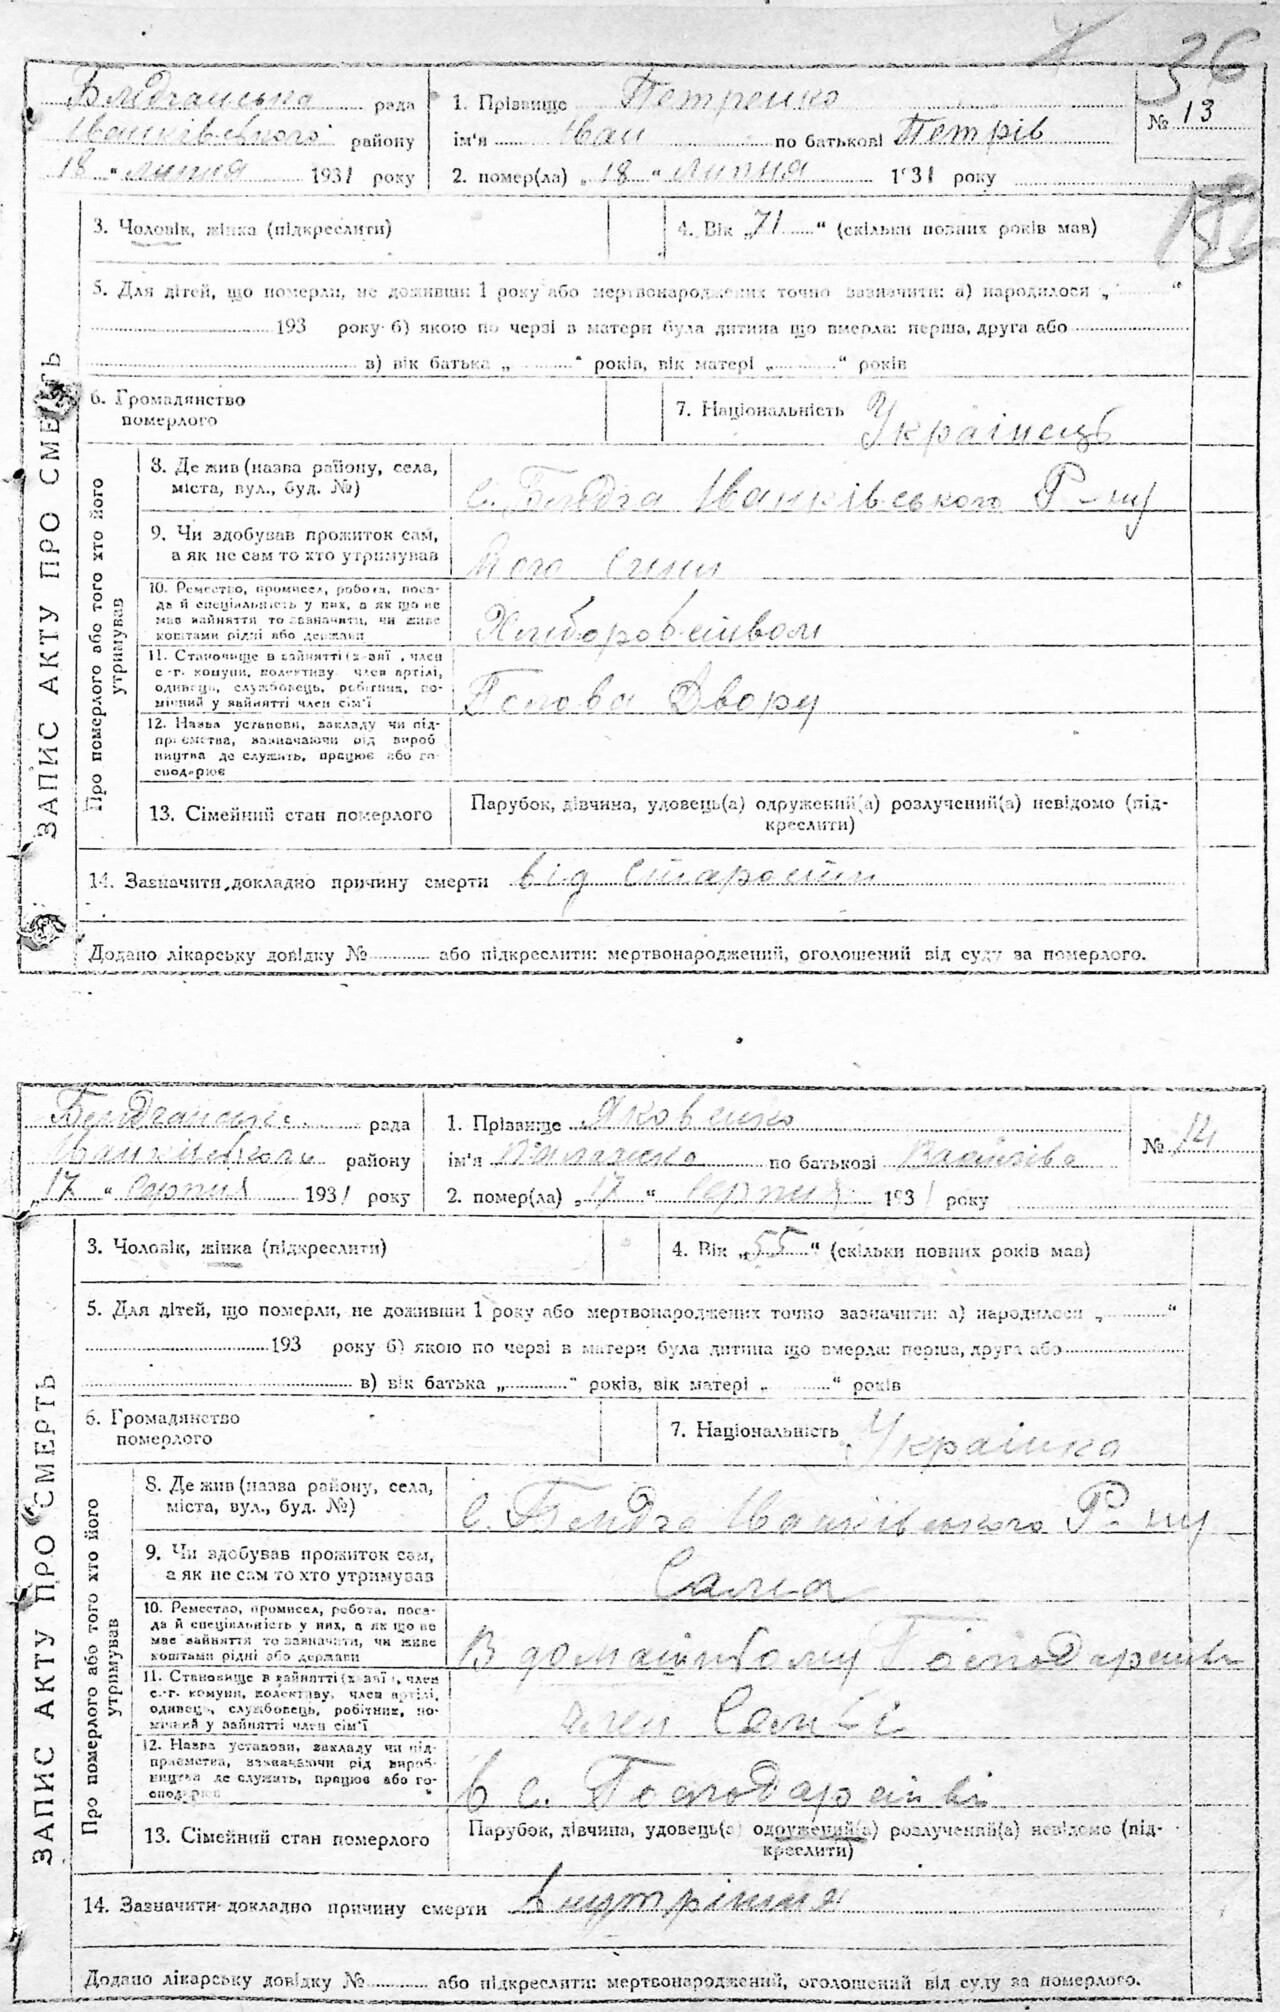 36
Блідчанська рада
Іванківського району
18 " липня 1931 року
1. Прізвище Петренко
ім'я Іван по батькові Петрів
2. помер(ла) „ 18 " липня 1931 року
№ 13
3. Чоловік, жінка (підкреслити)
4. Вік „ 71 " (скільки повних років мав)
5. Для дітей, що померли, не доживши 1 року або мертвонароджених точно зазначити: а) народилося „ "
193 року б) якою по черзі в матери була дитина що вмерла: перша, друга або
в) вік батька „ " років, вік матері „ " років
ЗАПИС АКТУ ПРО СМЕРТЬ
6. Громадянство
померлого
7. Національність Українець
Про померлого або того хто його
утримував
8. Де жив (назва району, села,
міста, вул., буд. №)
с. Блідча Іванківського Р-ну
9. Чи здобував прожиток сам,
а як не сам то хто утримував
Його Сини
10. Ремество, промисел, робота, поса-
да й спеціяльність у них, а як що не
має зайняття то зазначити, чи живе
коштами рідні або держави
Хліборобством
11. Становище в зайнятті (хазяї, член
с.-г. комуни, колективу, член артілі,
одинець, службовець, робітник, по-
мічний у зайнятті член сім'ї
Голова Двору
12. Назва установи, закладу чи під-
приємства, зазначаючи рід вироб
ництва де служить, працює або го-
сподарює
13. Сімейний стан померлого
Парубок, дівчина, удовець(а) одружений(а) розлучений(а) невідомо (під-
креслити)
14. Зазначити докладно причину смерти від старости
Додано лікарську довідку № або підкреслити: мертвонароджений, оголошений від суду за померлого.
Блідчанська рада
Іванківського району
„ 17 " Серпня 1931 року
1. Прізвище Яковенко
ім'я по батькові
2. помер(ла) „ 17 " Серпня 1931 року
№ 14
3. Чоловік, жінка (підкреслити)
4. Вік „ 55 " (скільки повних років мав)
5. Для дітей, що померли, не доживши 1 року або мертвонароджених точно зазначити: а) народилося „ "
193 року б) якою по черзі в матери була дитина що вмерла: перша, друга або
в) вік батька „ " років, вік матері „ " років
ЗАПИС АКТУ ПРО СМЕРТЬ
6. Громадянство
померлого
7. Національність Українка
Про померлого або того хто його
утримував
8. Де жив (назва району, села,
міста, вул., буд. №)
с. Блідча Іванківського Р-ну
9. Чи здобував прожиток сам,
а як не сам то хто утримував
Сама
10. Ремество, промисел, робота, поса-
да й спеціяльність у них, а як що не
має зайняття то зазначити, чи живе
коштами рідні або держави
В домашньому Господарстві
11. Становище в зайнятті (хазяї, член
с.-г. комуни, колективу, член артілі,
одинець, службовець, робітник, по-
мічний у зайнятті член сім'ї
член Сем'ї
12. Назва установи, закладу чи під-
приємства, зазначаючи рід вироб-
ництва де служить, працює або го-
сподарює
в с. Господарстві
13. Сімейний стан померлого
Парубок, дівчина, удовець(а) одружений(а) розлучений(а) невідомо (під-
креслити)
14. Зазначити докладно причину смерти Внутрішня
Додано лікарську довідку № або підкреслити: мертвонароджений, оголошений від суду за померлого.